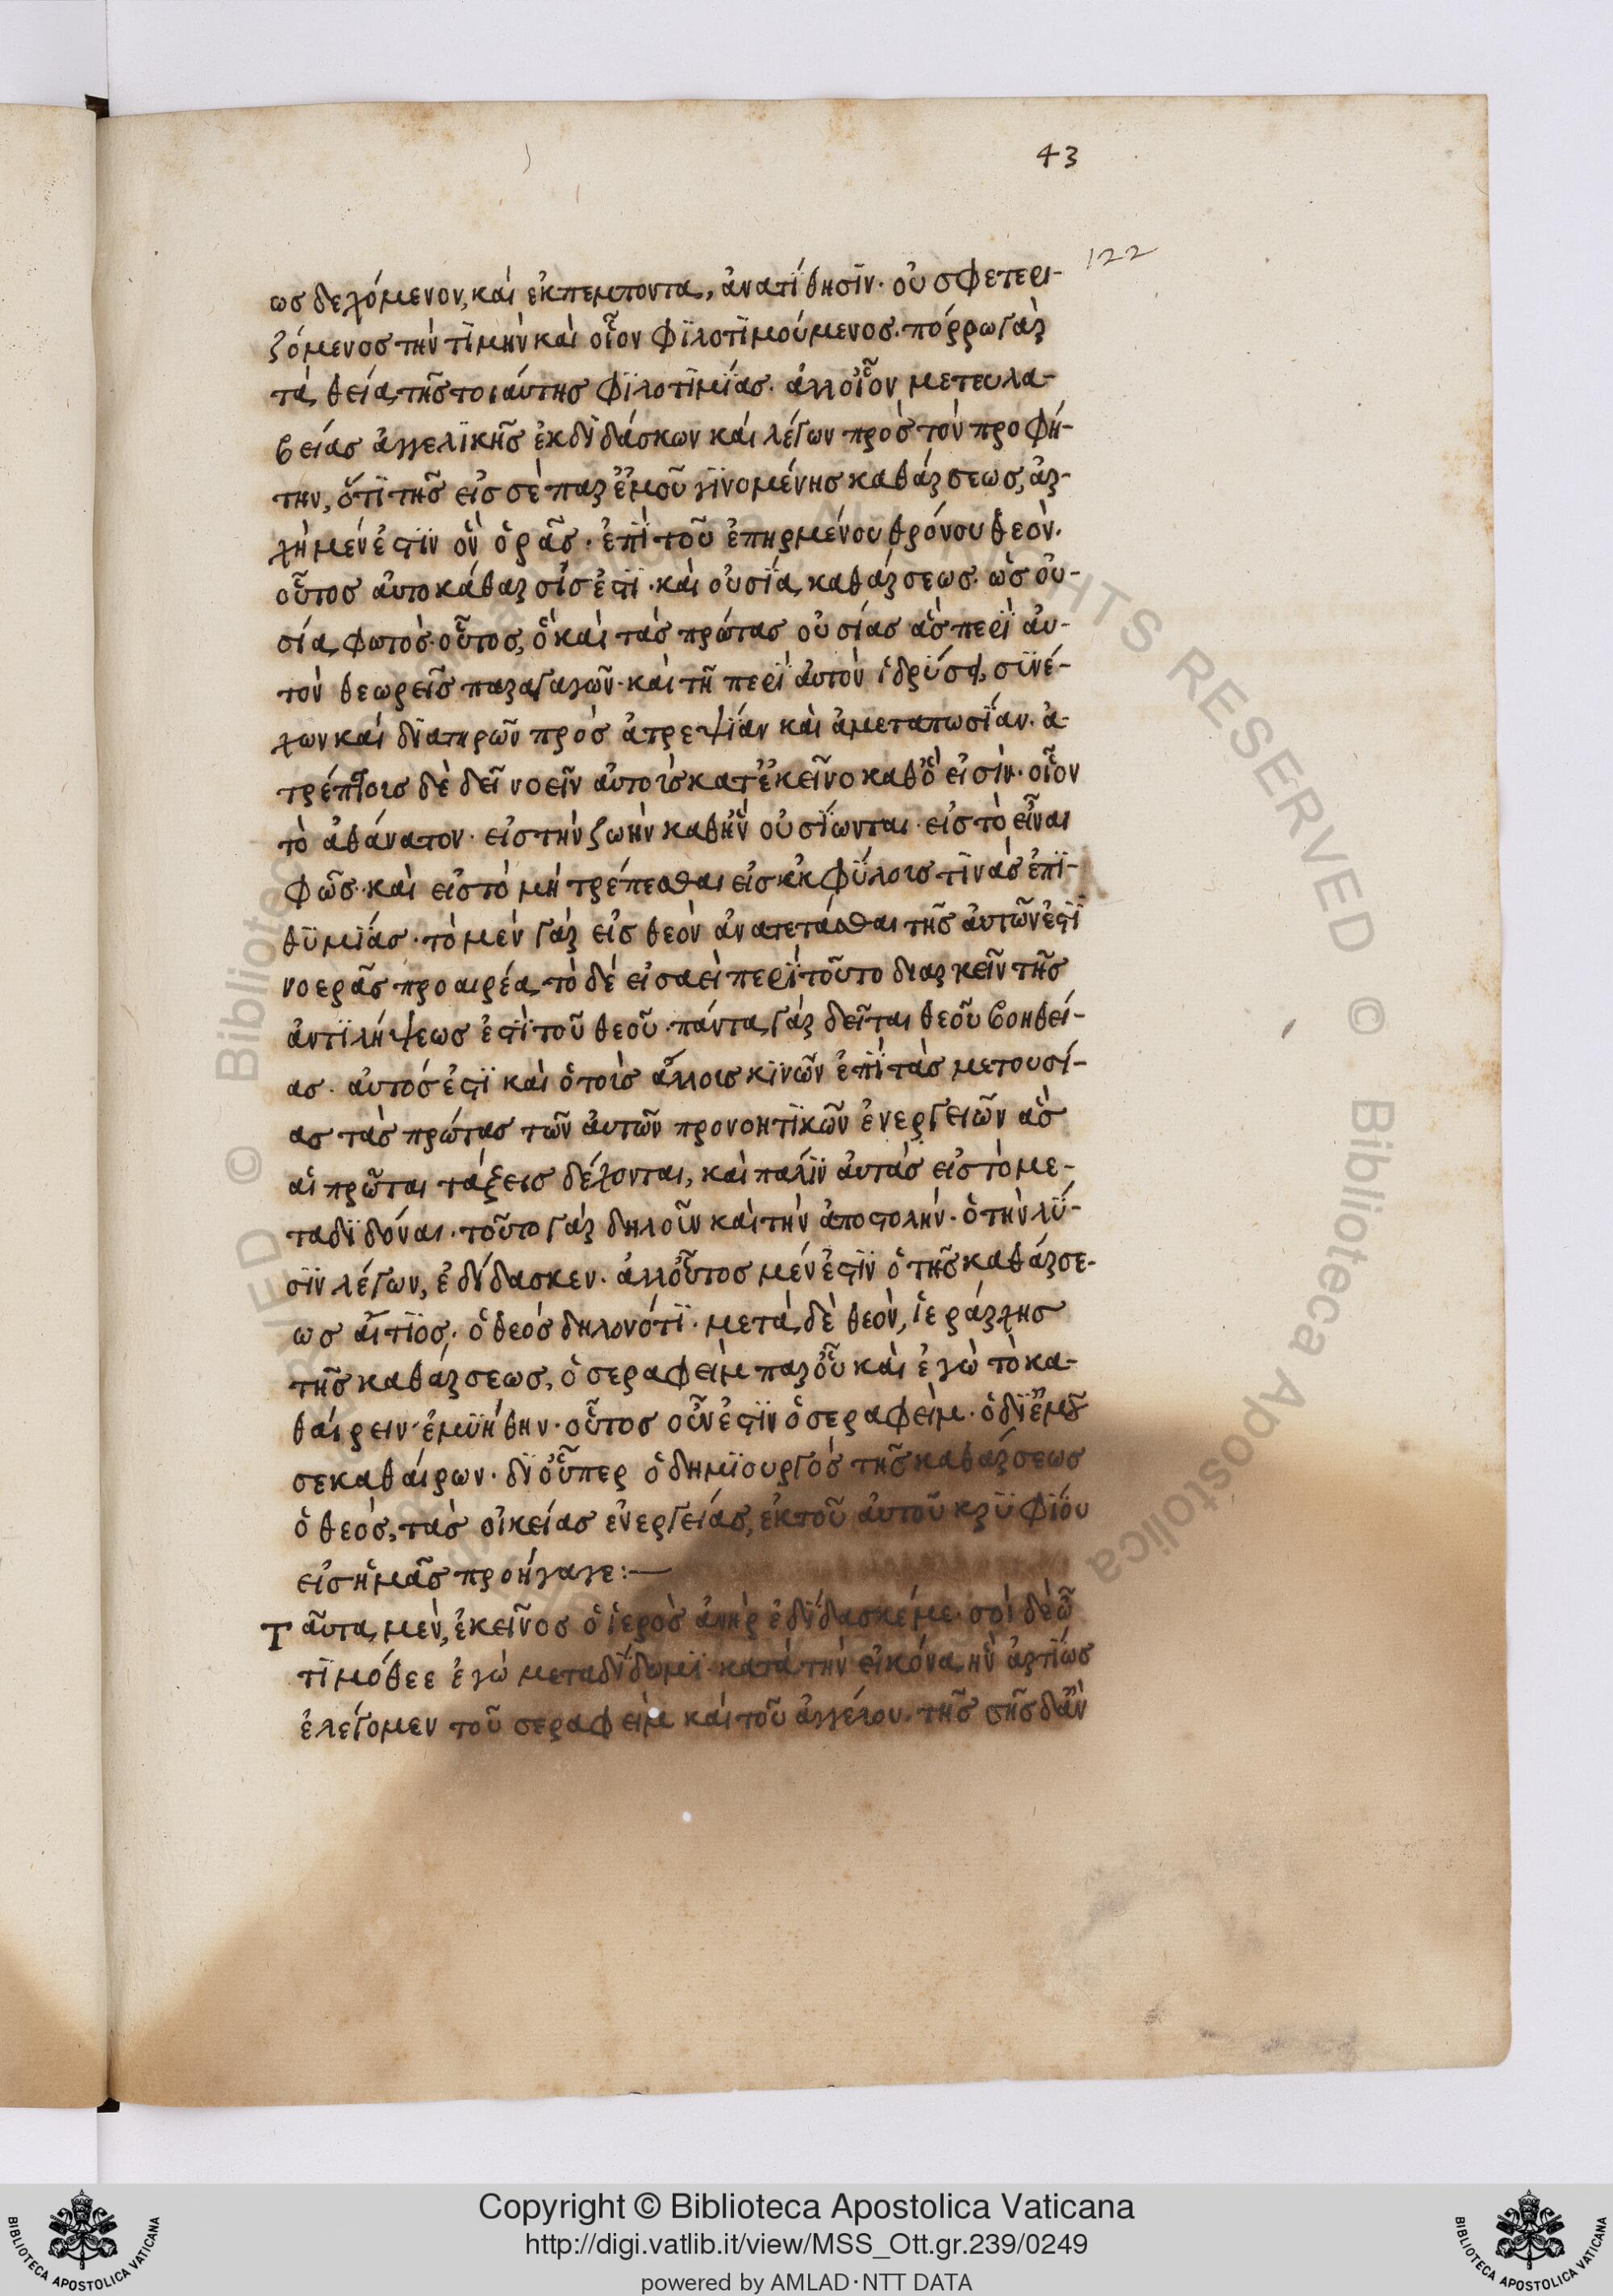 43
122
ως δεχόμενον, καὶ ἐκπέμποντα, ἀνατίθησϊν· οὐ σφετερι-
ζόμενος τὴν τϊμὴν καὶ οἷον φϊλοτϊμούμενος· πόρρω γὰρ
τὰ θεία τῆς τοιαύτης φϊλοτϊμϊας· ἀλλοῖον μετευλα-
βείας ἀγγελϊκῆς ἐκδϊδάσκων καὶ λέγων πρὸς τὸν προφή-
την, ὅτϊ τῆς εἰς σὲ παρ ἐμοῦ γϊνομένης καθάρσεως, ἀρ-
χὴ μέν ἐστϊν ὃν ὁρᾶς· ἐπὶ τοῦ ἐπηρμένου θρόνου θεὸν·
οὗτος αὐτοκάθαρσίς ἐστϊ· καὶ οὐσϊα καθάρσεως· ὡς οὐ-
σία φωτὸς· οὗτος, ὁ καὶ τὰς πρώτας οὐσίας ἃς περὶ αὐ-
τὸν θεωρεῖς παραγαγὼν· καὶ τῆ περὶ αὐτὸν ἱδρύσει, σϋνέ-
χων καὶ δϊατηρῶν πρὸς ἀτρεψϊαν καὶ ἀμεταπτωσϊαν· ἀ-
τρέπτοις δὲ δεῖ νοεῖν αὐτοὶς κατ ἐκεῖνο καθ ὃ εἰσὶν· οἷον
τὸ ἀθάνατον· εἰς τὴν ζωὴν καθ ἣν οὐσϊωνται· εἰς τὸ εἶναι
φῶς· καὶ εἰς τὸ μὴ τρέπεσθαι εἰς ἐκφϋλοις τϊνὰς ἐπϊ-
θϋμϊας· τὸ μὲν γὰρ εἰς θεὸν ἀνατετάσθαι τῆς αὐτῶν ἐστϊ
νοερᾶς προαιρέα, τὸ δὲ εἰσαεὶ περὶ τοῦτο διαρκεῖν τῆς
ἀντϊλήψεως ἐστϊ τοῦ θεοῦ· πάντα γὰρ δεῖται θεοῦ βοηθεί-
ας· αὐτός ἐστϊ καὶ ὁ τοὶς ἄλλοις κϊνῶν ἐπὶ τὰς μετουσί-
ας τὰς πρώτας τῶν αὐτῶν προνοητϊκῶν ἐνεργειῶν ἃς
αἱ πρῶται τάξεις δέχονται, καὶ παλϊν αὐτὰς εἰς τὸ με-
ταδϊδόναι· τοῦτο γὰρ δηλοῦν καὶ τὴν ἀποστολὴν· ὁ τὴν λϋ-
σϊν λέγων, ἐδϊδασκεν· ἀλλ οὗτος μέν ἐστϊν ὁ τῆς καθάρσε-
ως αἴτϊος, ὁ θεὸς δηλονότϊ· μετὰ δὲ θεὸν, ἱεράρχης
τῆς καθάρσεως, ὁ σεραφεὶμ παρ οὗ καὶ ἐγὼ τὸ κα-
θαίρειν ἐμϋήθην· οὗτος οὖν ἐστϊν ὁ σεραφεὶμ· ὁ δϊ ἐμοῦ
σε καθαίρων· δϊ οὗπερ ὁ δημϊουργὸς τῆς καθάρσεως
ὁ θεὸς, τὰς οἰκείας ἐνεργείας, ἐκ τοῦ αὐτοῦ κρϋφϊου
εἰς ἡμᾶς προήγαγε:—
Ταῦτα μὲν, ἐκεῖνος ὁ ἱερὸς ἀνὴρ ἐδϊδασκέ με· σοὶ δὲ ὦ
τϊμόθεε ἐγὼ μεταδϊδωμϊ· κατὰ τὴν εἰκόνα, ἣν ἀρτϊως
ἐλέγομεν τοῦ σεραφεὶμ καὶ τοῦ ἀγγέλου· τῆς σῆς δ ἂν
Copyright © Biblioteca Apostolica Vaticana
http://digi.vatlib.it/view/MSS_Ott.gr.239/0249
powered by AMLAD·NTT DATA